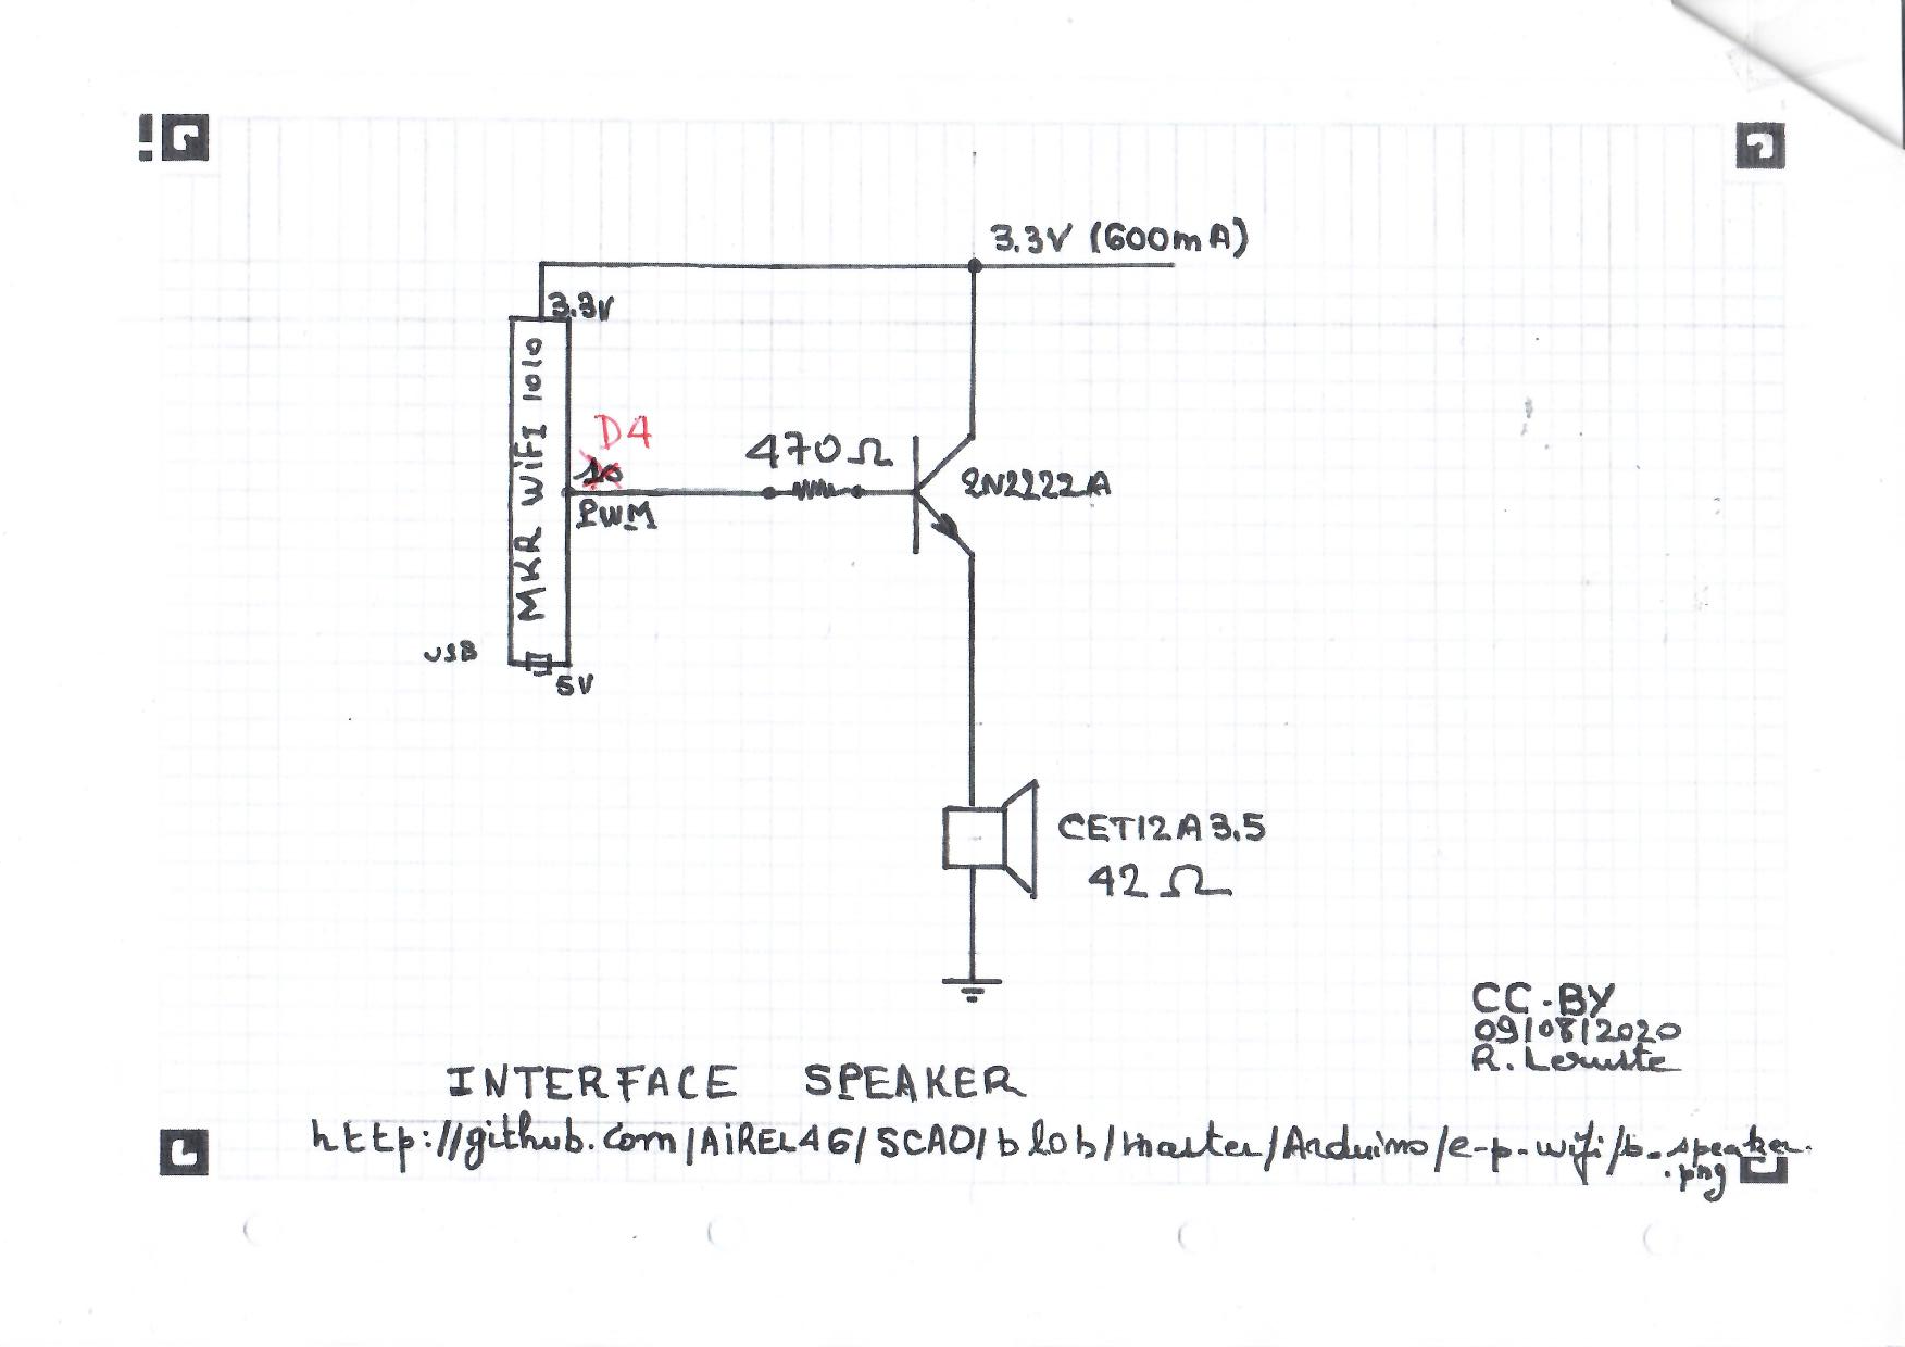 3.3V (600mA)
3.3V
MKR WiFi 1010
D4
10
PWM
470Ω
2N2222A
USB
5V
CET12A3.5
42Ω
CC-BY
09/08/2020
R. Leruste
INTERFACE SPEAKER
http://github.com/AiREL46/SCAO/blob/master/Arduino/e-p-wifi/b-speaker.
.png